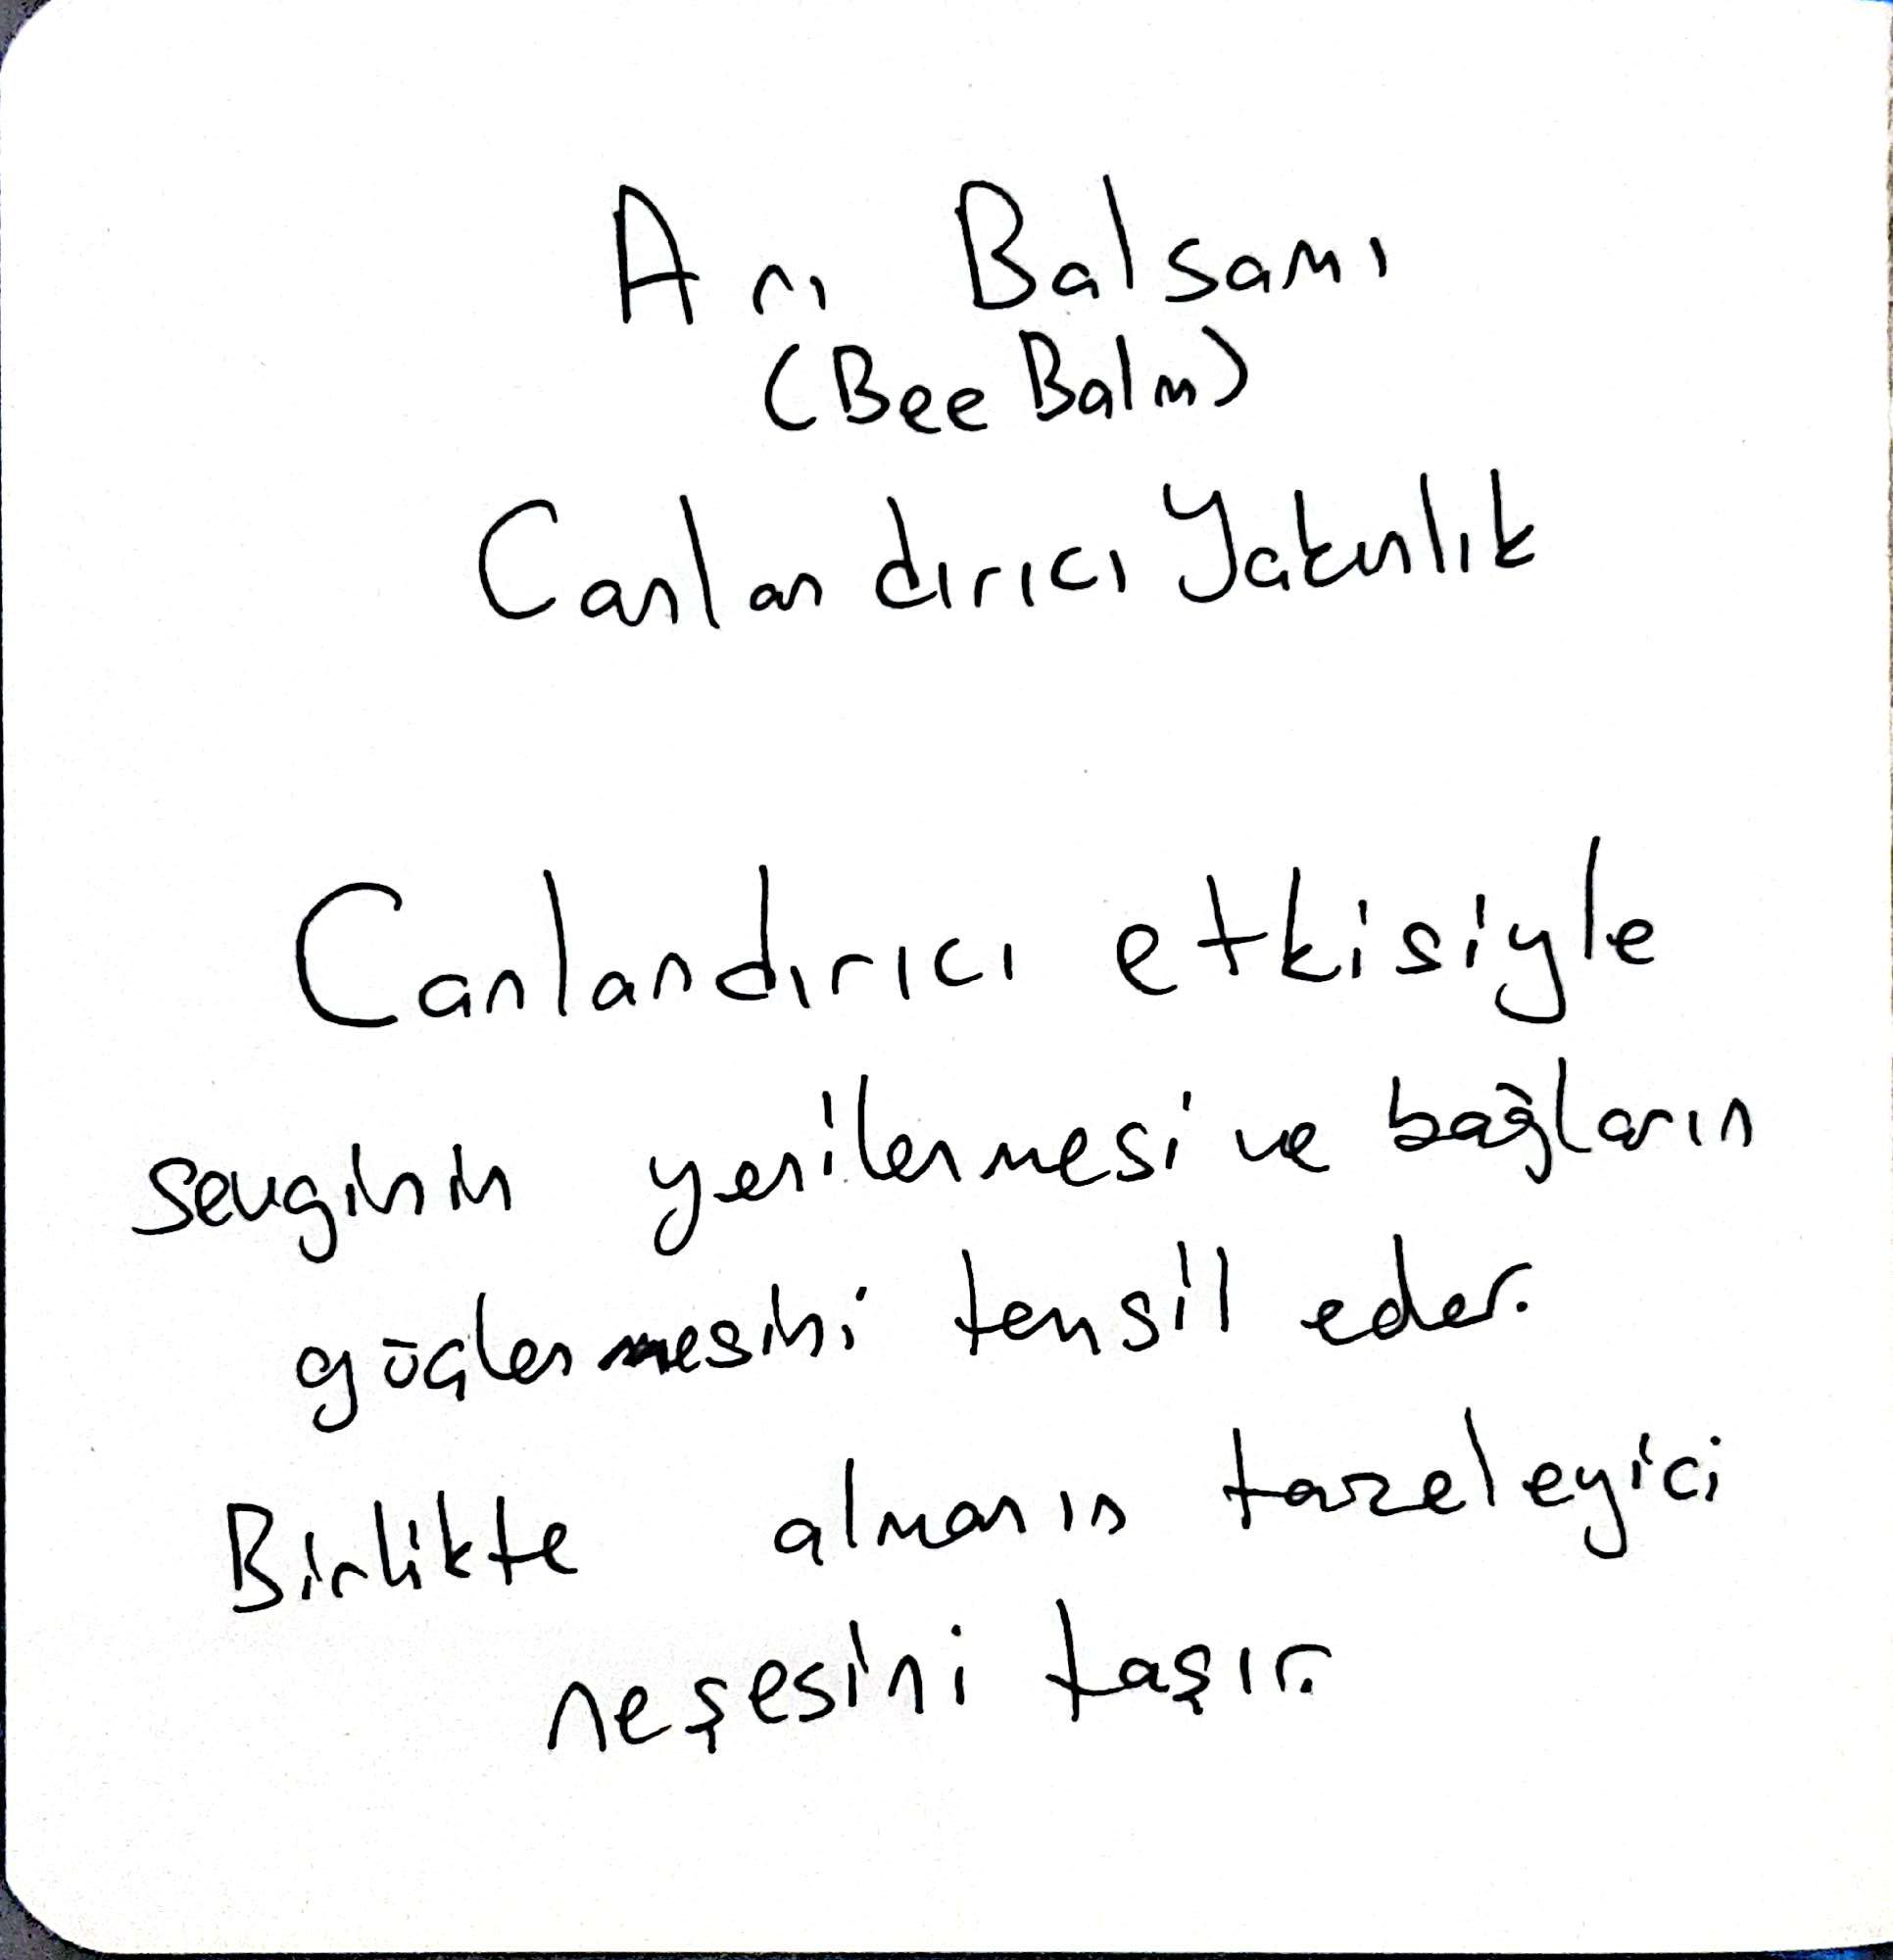 Arı Balsamı
(Bee Balm)
Canlandırıcı Yakınlık
Canlandırıcı etkisiyle
sevginin yenilenmesi ve bağların
güçlenmesini temsil eder.
Birlikte almanın tazeleyici
neşesini taşır.